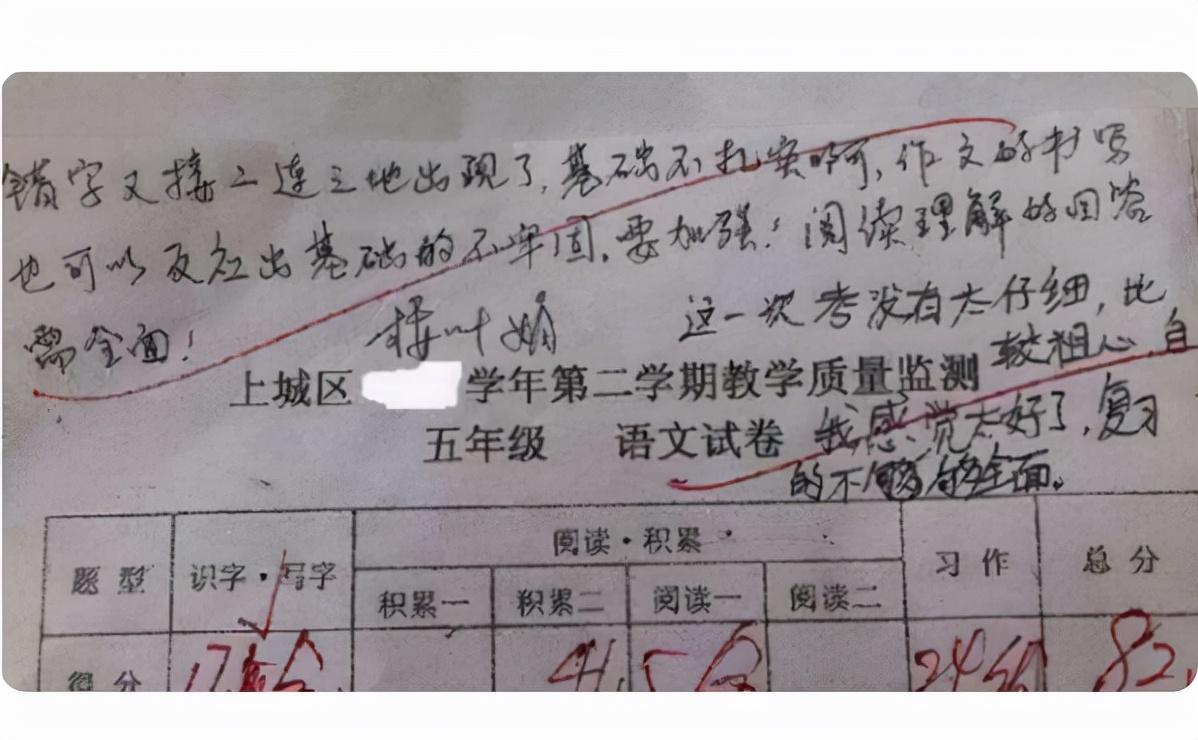 错字又接二连三地出现了,基础不扎实啊,作文的书写
也可以反应出基础的不牢固,要加强!阅读理解的回答
需全面!
这一次考没有太仔细,比
较粗心,自
上城区 学年第二学期教学质量监测
五年级 语文试卷
我感觉太好了,复习
的不够够全面。
题型 识字·写字 阅读·积累 习作 总分
积累一 积累二 阅读一 阅读二
得分 41. 82.